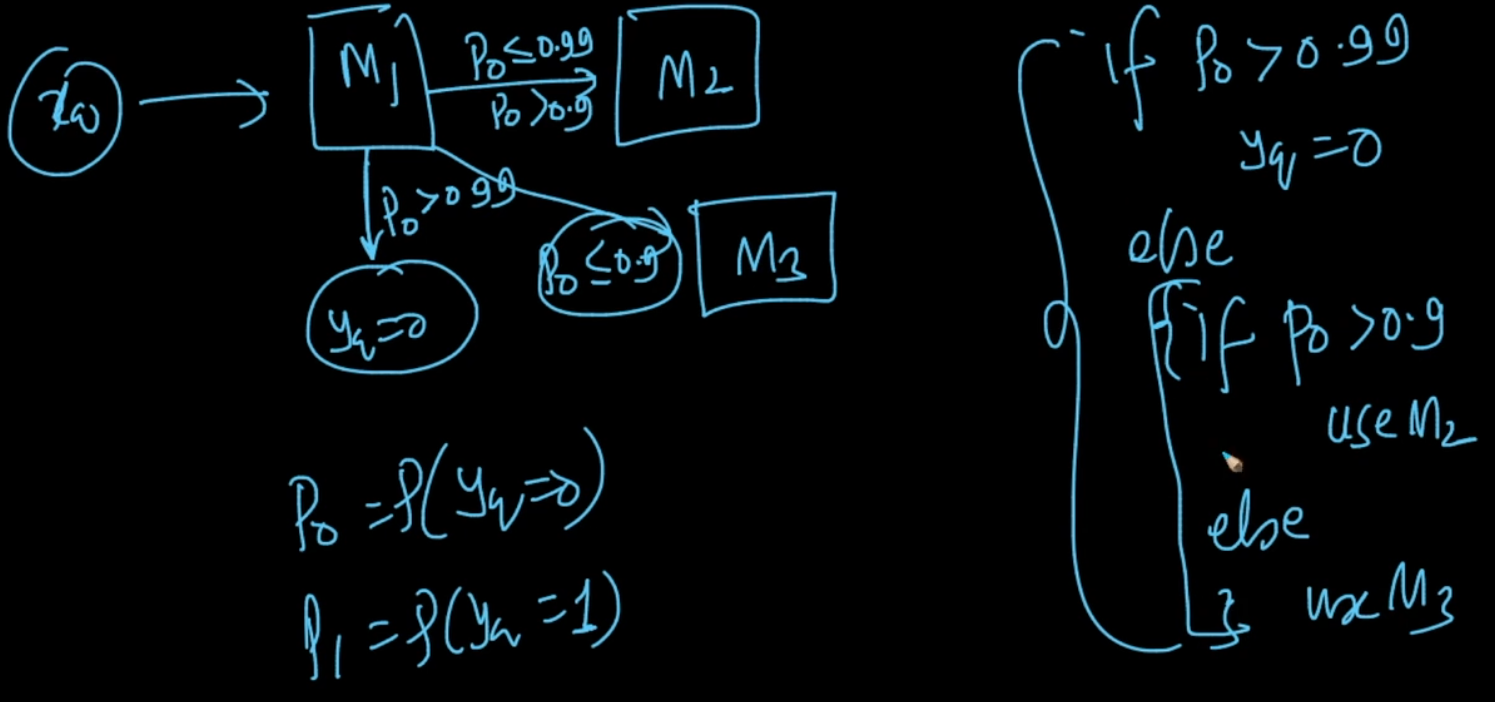 x_q
M_1
P_0 ≤ 0.99
P_0 > 0.9
M_2
P_0 > 0.99
y_q = 0
P_0 ≤ 0.9
M_3
P_0 = P(y_q = 0)
P_1 = P(y_q = 1)
if P_0 > 0.99
y_q = 0
else
{ if P_0 > 0.9
use M_2
else
} use M_3